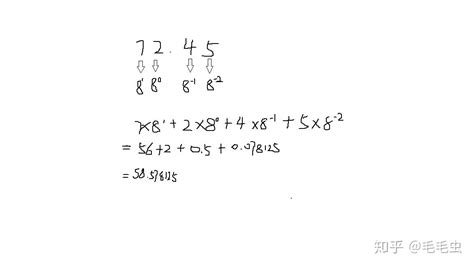 72.45
8¹ 8⁰ 8⁻¹ 8⁻²
7×8¹+2×8⁰+4×8⁻¹+5×8⁻²
=56+2+0.5+0.078125
=58.578125
知乎 @毛毛虫